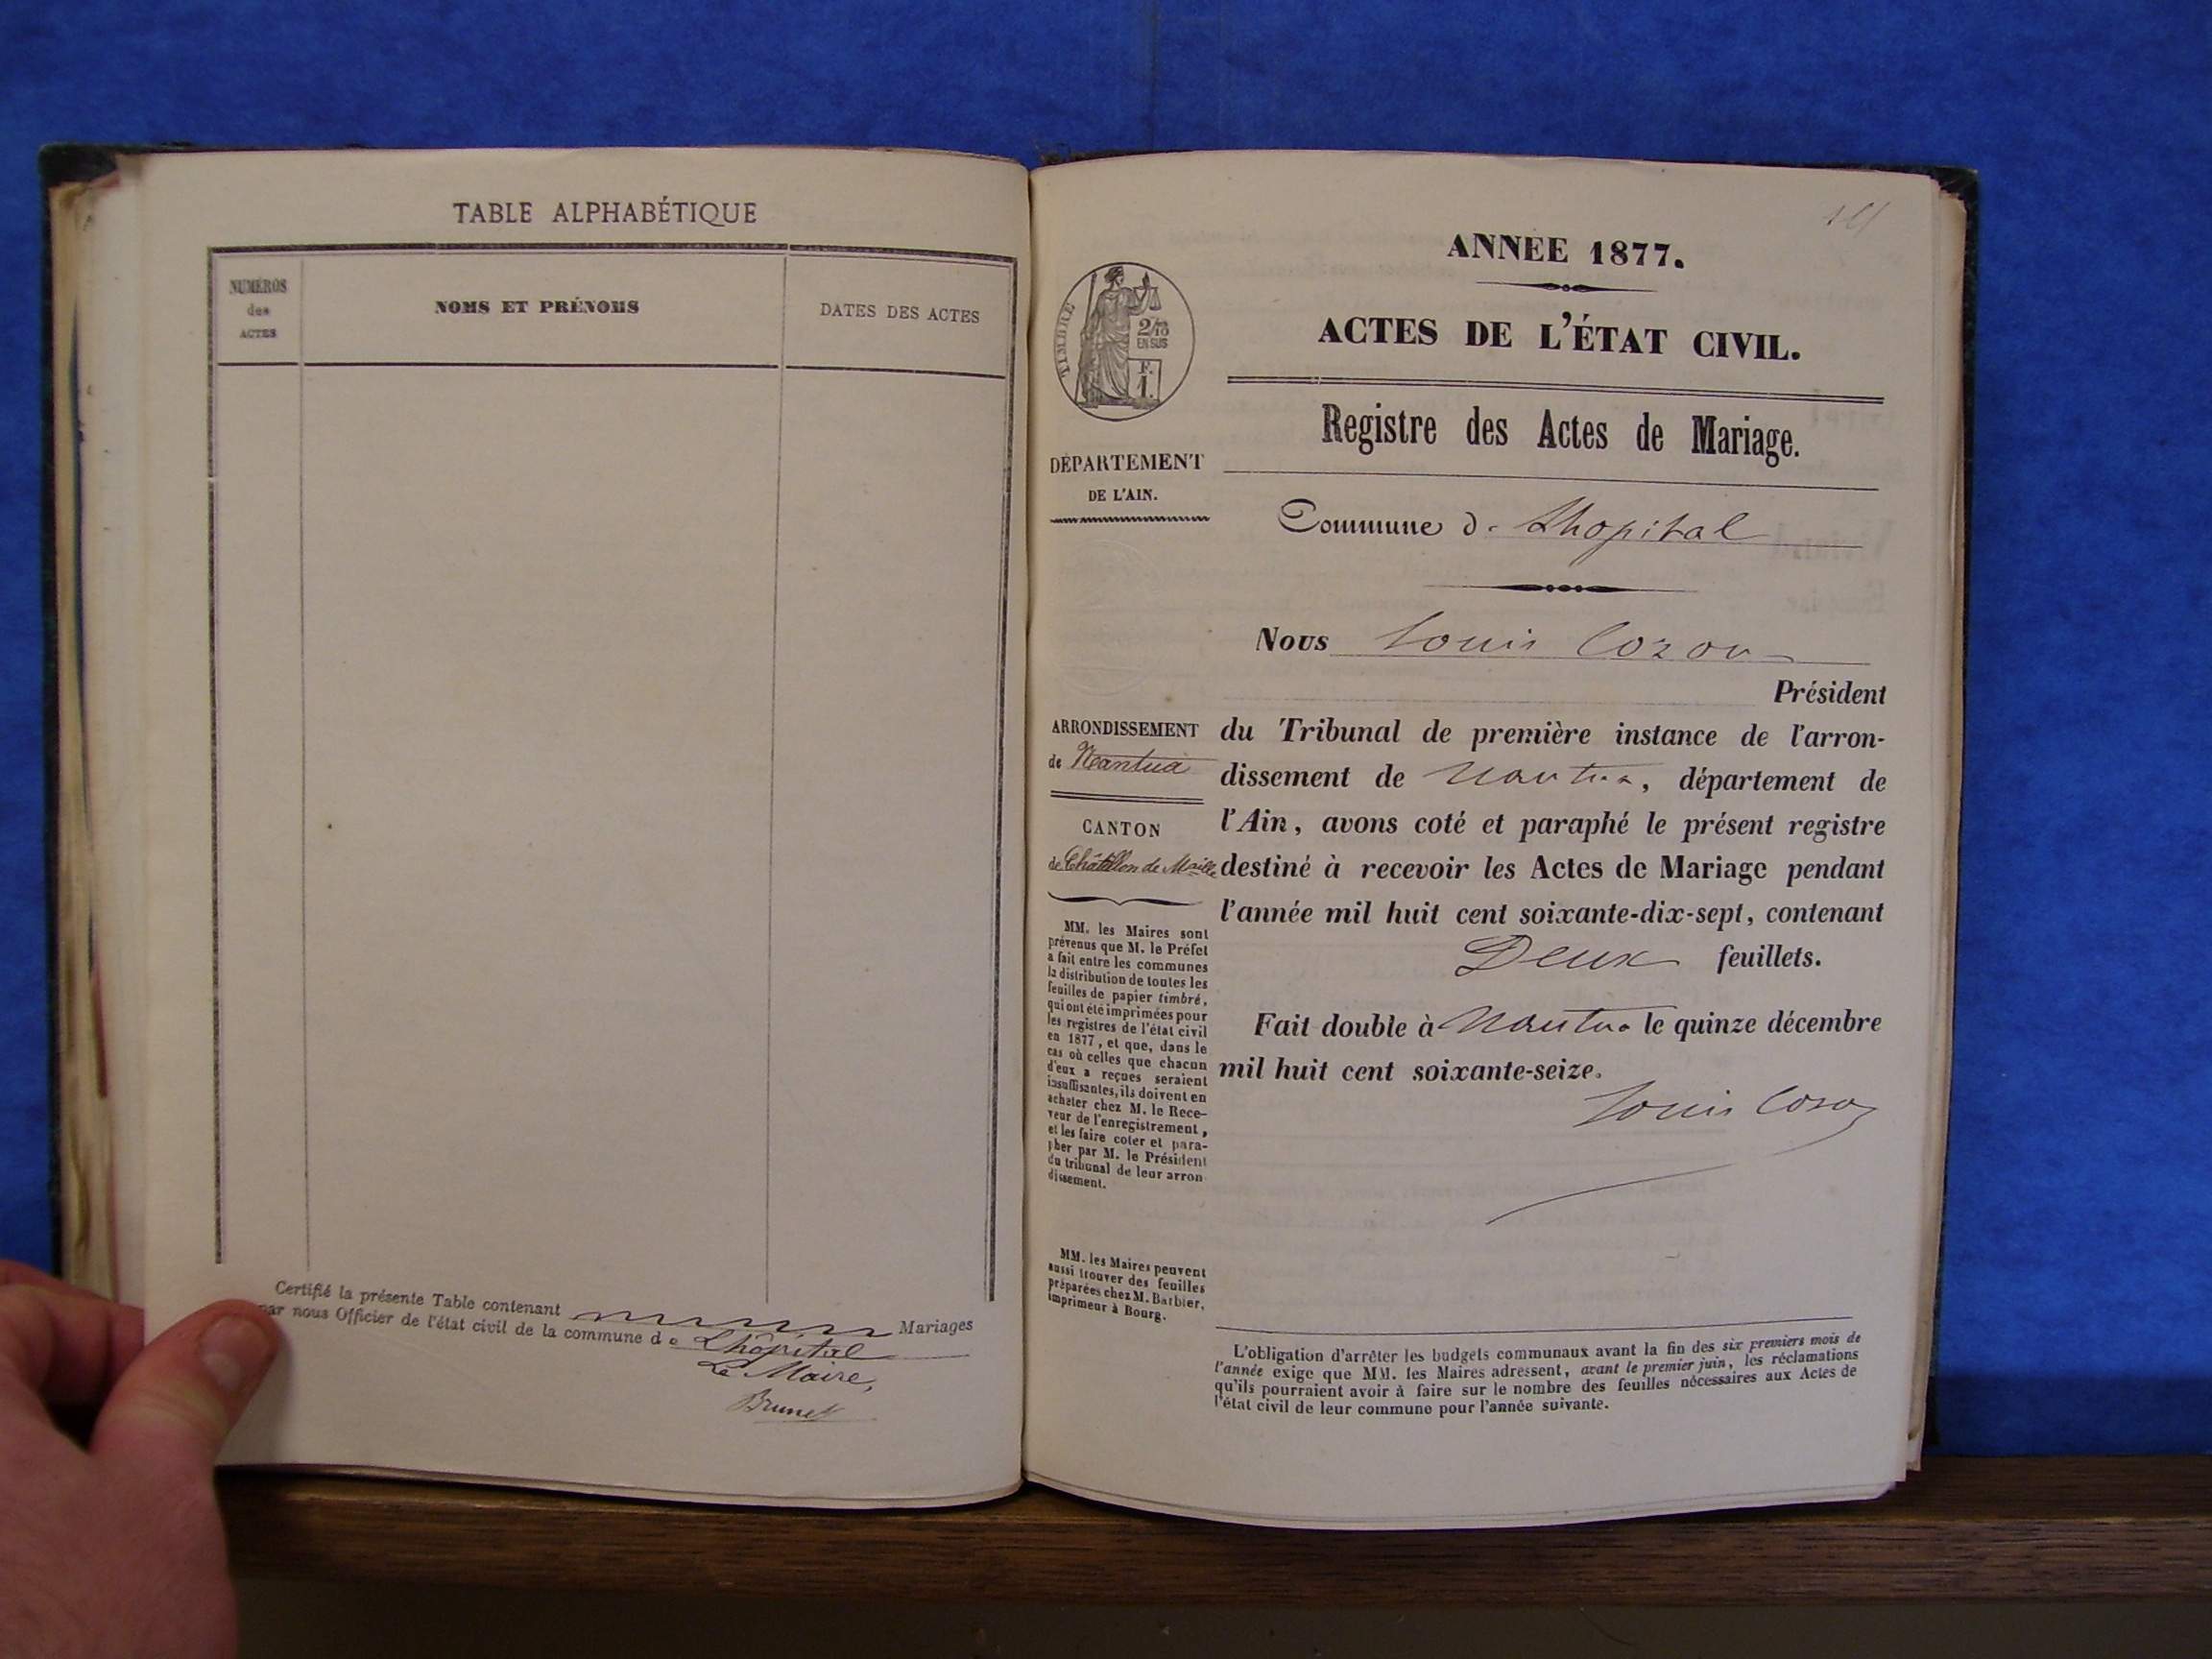 TABLE ALPHABÉTIQUE
NUMÉROS
des
ACTES
NOMS ET PRÉNOMS
DATES DES ACTES
Certifié la présente Table contenant Mariages
par nous Officier de l'état civil de la commune de Lhôpital
Le Maire,
Brunet
ANNÉE 1877.
ACTES DE L'ÉTAT CIVIL.
Registre des Actes de Mariage.
TIMBRE
2/10
EN SUS
F.
1.
DÉPARTEMENT
DE L'AIN.
Commune d. Lhopital
Nous Louis Cozon
Président
ARRONDISSEMENT
de Nantua
CANTON
de Châtillon de Maille
du Tribunal de première instance de l'arron-
dissement de Nantua, département de
l'Ain, avons coté et paraphé le présent registre
destiné à recevoir les Actes de Mariage pendant
l'année mil huit cent soixante-dix-sept, contenant
Deux feuillets.
Fait double à Nantua le quinze décembre
mil huit cent soixante-seize.
Louis Cozon
MM. les Maires sont
prévenus que M. le Préfet
a fait entre les communes
la distribution de toutes les
feuilles de papier timbré,
qui ont été imprimées pour
les registres de l'état civil
en 1877, et que, dans le
cas où celles que chacun
d'eux a reçues seraient
insuffisantes, ils doivent en
acheter chez M. le Rece-
veur de l'enregistrement,
et les faire coter et para-
pher par M. le Président
du tribunal de leur arron
dissement.
MM. les Maires peuvent
aussi trouver des feuilles
préparées chez M. Barbier,
imprimeur à Bourg.
L'obligation d'arrêter les budgets communaux avant la fin des six premiers mois de
l'année exige que MM. les Maires adressent, avant le premier juin, les réclamations
qu'ils pourraient avoir à faire sur le nombre des feuilles nécessaires aux Actes de
l'état civil de leur commune pour l'année suivante.